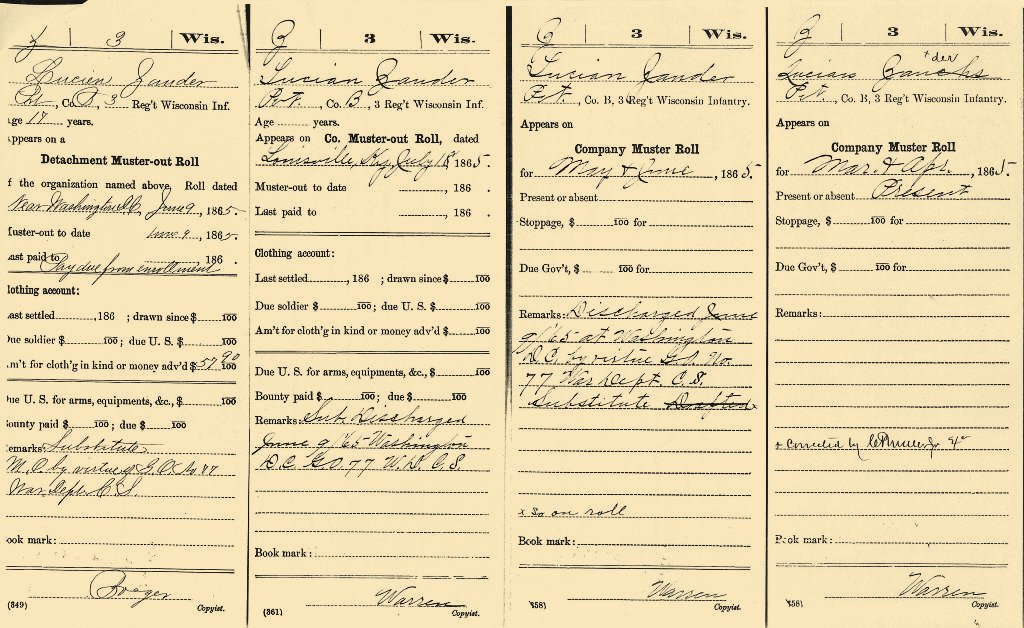 Z | 3 | Wis.
Lucien Zander
Pvt, Co. B, 3 Reg't Wisconsin Inf.
ge 17 years.
ppears on a
Detachment Muster-out Roll
f the organization named above. Roll dated
Near Washington D.C. June 9, 1865.
uster-out to date June 9, 1865.
ast paid to , 186 .
Pay due from enrollment
lothing account:
ast settled , 186 ; drawn since $ 100
ue soldier $ 100; due U. S. $ 100
m't for cloth'g in kind or money adv'd $ 57 90 100
ue U. S. for arms, equipments, &c., $ 100
ounty paid $ 100; due $ 100
emarks: Substitute
M.O. by virtue of G.O. No 77
War Dept. C.S.
ook mark:
(349) Copyist.
Z | 3 | Wis.
Lucian Zander
Pvt., Co. B, 3 Reg't Wisconsin Inf.
Age years.
Appears on Co. Muster-out Roll, dated
Louisville, Ky, July 18 1865.
Muster-out to date , 186 .
Last paid to , 186 .
Clothing account:
Last settled , 186 ; drawn since $ 100
Due soldier $ 100; due U. S. $ 100
Am't for cloth'g in kind or money adv'd $ 100
Due U. S. for arms, equipments, &c., $ 100
Bounty paid $ 100; due $ 100
Remarks: Sub Discharged
June 9 '65 Washington
D.C. G.O. 77 W.D. C.S.
Book mark:
Warren
(361) Copyist.
Z | 3 | Wis.
Lucian Zander
Pvt., Co. B, 3 Reg't Wisconsin Infantry.
Appears on
Company Muster Roll
for May & June, 1865.
Present or absent
Stoppage, $ 100 for
Due Gov't, $ 100 for
Remarks: Discharged June
9/65 at Washington
D.C. by virtue G.O. No.
77 War Dept. C.S.
Substitute Drafted x
x So on roll
Book mark:
Warren
(358) Copyist.
Z | 3 | Wis.
+ der
Lucians
Pvt., Co. B, 3 Reg't Wisconsin Infantry.
Appears on
Company Muster Roll
for Mar. & Apr., 1865.
Present or absent Present
Stoppage, $ 100 for
Due Gov't, $ 100 for
Remarks:
+ Corrected by
Book mark:
Warren
(358) Copyist.